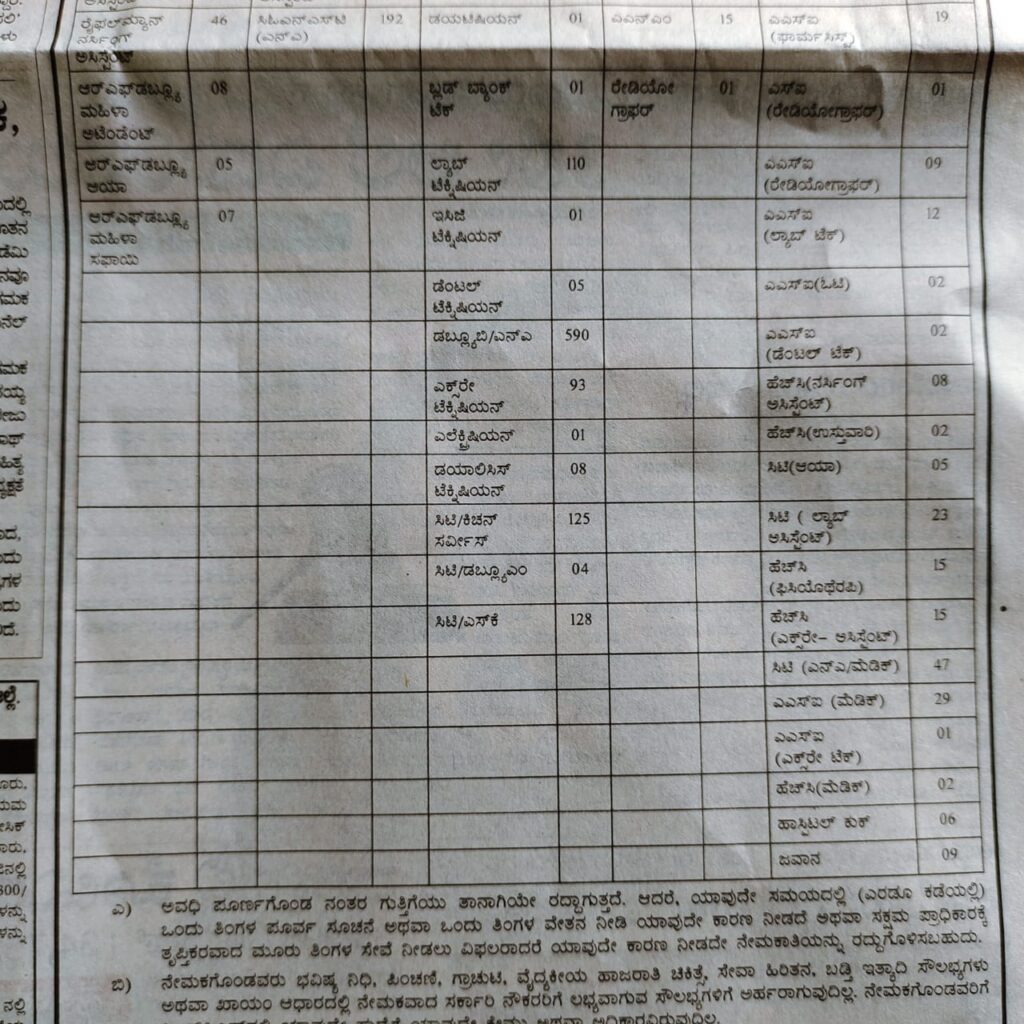 ರೈಫಲ್‌ಮ್ಯಾನ್ 46 ಸಿಓಎನ್‌ಎಸ್‌ಟಿ 192 ಡಯಟಿಷಿಯನ್ 01 ಎಎನ್‌ಎಂ 15 ಎಎಸ್‌ಐ 19
ನರ್ಸಿಂಗ್ (ಎನ್‌ಎ) (ಫಾರ್ಮಾಸಿಸ್ಟ್)
ಅಸಿಸ್ಟೆಂಟ್
ಆರ್‌ಎಫ್‌ಡಬ್ಲ್ಯೂ 08 ಬ್ಲಡ್ ಬ್ಯಾಂಕ್ 01 ರೇಡಿಯೋ 01 ಎಸ್‌ಐ 01
ಮಹಿಳಾ ಟೆಕ್ ಗ್ರಾಫರ್ (ರೇಡಿಯೋಗ್ರಾಫರ್)
ಅಟೆಂಡೆಂಟ್
ಆರ್‌ಎಫ್‌ಡಬ್ಲ್ಯೂ 05 ಲ್ಯಾಬ್ 110 ಎಎಸ್‌ಐ 09
ಆಯಾ ಟೆಕ್ನಿಷಿಯನ್ (ರೇಡಿಯೋಗ್ರಾಫರ್)
ಆರ್‌ಎಫ್‌ಡಬ್ಲ್ಯೂ 07 ಇಸಿಜಿ 01 ಎಎಸ್‌ಐ 12
ಮಹಿಳಾ ಟೆಕ್ನಿಷಿಯನ್ (ಲ್ಯಾಬ್ ಟೆಕ್)
ಸಫಾಯಿ
ಡೆಂಟಲ್ 05 ಎಎಸ್‌ಐ(ಓಟಿ) 02
ಟೆಕ್ನಿಷಿಯನ್
ಡಬ್ಲ್ಯೂಬಿ/ಎನ್‌ಎ 590 ಎಎಸ್‌ಐ 02
(ಡೆಂಟಲ್ ಟೆಕ್)
ಎಕ್ಸ್‌ರೇ 93 ಹೆಚ್‌ಸಿ(ನರ್ಸಿಂಗ್ 08
ಟೆಕ್ನಿಷಿಯನ್ ಅಸಿಸ್ಟೆಂಟ್)
ಎಲೆಕ್ಟ್ರಿಷಿಯನ್ 01 ಹೆಚ್‌ಸಿ(ಉಸ್ತುವಾರಿ) 02
ಡಯಾಲಿಸಿಸ್ 08 ಸಿಟಿ(ಆಯಾ) 05
ಟೆಕ್ನಿಷಿಯನ್
ಸಿಟಿ/ಕಿಚನ್ 125 ಸಿಟಿ ( ಲ್ಯಾಬ್ 23
ಸರ್ವೀಸ್ ಅಸಿಸ್ಟೆಂಟ್)
ಸಿಟಿ/ಡಬ್ಲ್ಯೂಎಂ 04 ಹೆಚ್‌ಸಿ 15
(ಫಿಸಿಯೊಥೆರಪಿ)
ಸಿಟಿ/ಎಸ್‌ಕೆ 128 ಹೆಚ್‌ಸಿ 15
(ಎಕ್ಸ್‌ರೇ- ಅಸಿಸ್ಟೆಂಟ್)
ಸಿಟಿ (ಎನ್‌ಎ/ಮೆಡಿಕ್) 47
ಎಎಸ್‌ಐ (ಮೆಡಿಕ್) 29
ಎಎಸ್‌ಐ 01
(ಎಕ್ಸ್‌ರೇ ಟೆಕ್)
ಹೆಚ್‌ಸಿ(ಮೆಡಿಕ್) 02
ಹಾಸ್ಪಿಟಲ್ ಕುಕ್ 06
ಜವಾನ 09
ಎ) ಅವಧಿ ಪೂರ್ಣಗೊಂಡ ನಂತರ ಗುತ್ತಿಗೆಯು ತಾನಾಗಿಯೇ ರದ್ದಾಗುತ್ತದೆ. ಆದರೆ, ಯಾವುದೇ ಸಮಯದಲ್ಲಿ (ಎರಡೂ ಕಡೆಯಲ್ಲಿ)
ಒಂದು ತಿಂಗಳ ಪೂರ್ವ ಸೂಚನೆ ಅಥವಾ ಒಂದು ತಿಂಗಳ ವೇತನ ನೀಡಿ ಯಾವುದೇ ಕಾರಣ ನೀಡದೆ ಅಥವಾ ಸಕ್ಷಮ ಪ್ರಾಧಿಕಾರಕ್ಕೆ
ತೃಪ್ತಿಕರವಾದ ಮೂರು ತಿಂಗಳ ಸೇವೆ ನೀಡಲು ವಿಫಲರಾದರೆ ಯಾವುದೇ ಕಾರಣ ನೀಡದೇ ನೇಮಕಾತಿಯನ್ನು ರದ್ದುಗೊಳಿಸಬಹುದು.
ಬಿ) ನೇಮಕಗೊಂಡವರು ಭವಿಷ್ಯ ನಿಧಿ, ಪಿಂಚಣಿ, ಗ್ರಾಚುಟಿ, ವೈದ್ಯಕೀಯ ಹಾಜರಾತಿ ಚಿಕಿತ್ಸೆ, ಸೇವಾ ಹಿರಿತನ, ಬಡ್ತಿ ಇತ್ಯಾದಿ ಸೌಲಭ್ಯಗಳು
ಅಥವಾ ಖಾಯಂ ಆಧಾರದಲ್ಲಿ ನೇಮಕವಾದ ಸರ್ಕಾರಿ ನೌಕರರಿಗೆ ಲಭ್ಯವಾಗುವ ಸೌಲಭ್ಯಗಳಿಗೆ ಅರ್ಹರಾಗುವುದಿಲ್ಲ. ನೇಮಕಗೊಂಡವರಿಗೆ